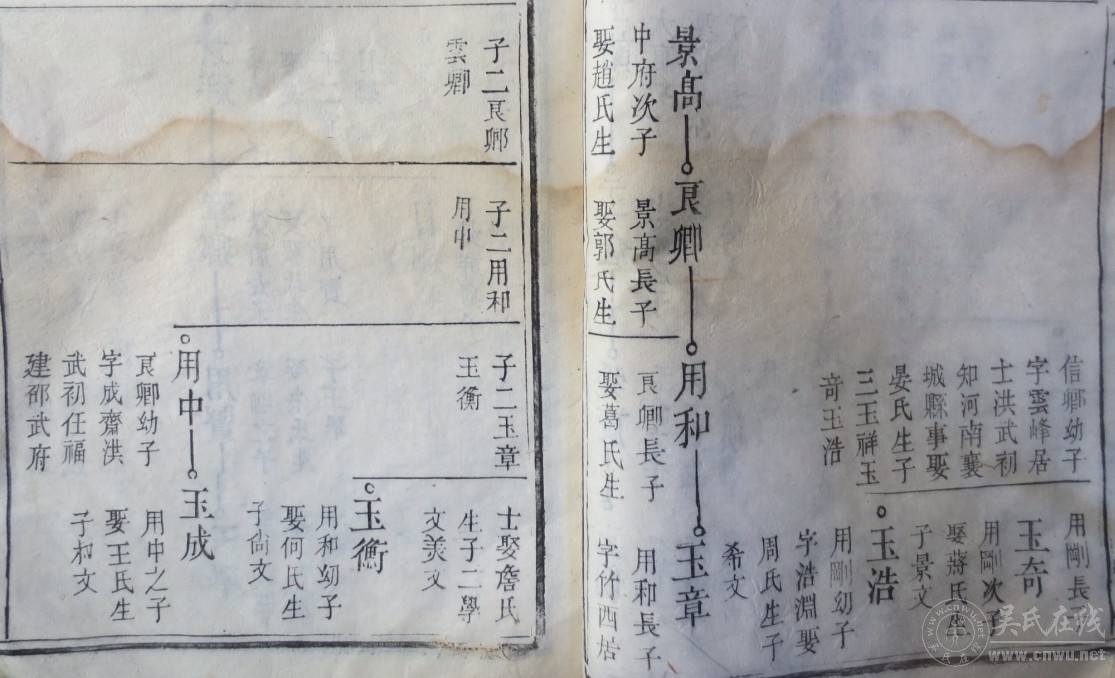 信卿幼子
字雲峰居
士洪武初
知河南襄
城縣事娶
晏氏生子
三玉祥玉
奇玉浩
用剛長子
玉奇
用剛次子
娶蔣氏生
子景文
玉浩
用剛幼子
字浩淵娶
周氏生子
希文
景髙
良卿
用和
玉章
中府次子
娶趙氏生
景髙長子
娶郭氏生
良卿長子
娶葛氏生
用和長子
字竹西居
子二良卿
雲卿
子二用和
用中
子二玉章
玉衡
士娶詹氏
生子二學
文美文
玉衡
用和幼子
娶何氏生
子尚文
用中
良卿幼子
字成齋洪
武初任福
建邵武府
玉成
用中之子
娶王氏生
子和文
吴氏在线
www.cnwu.net